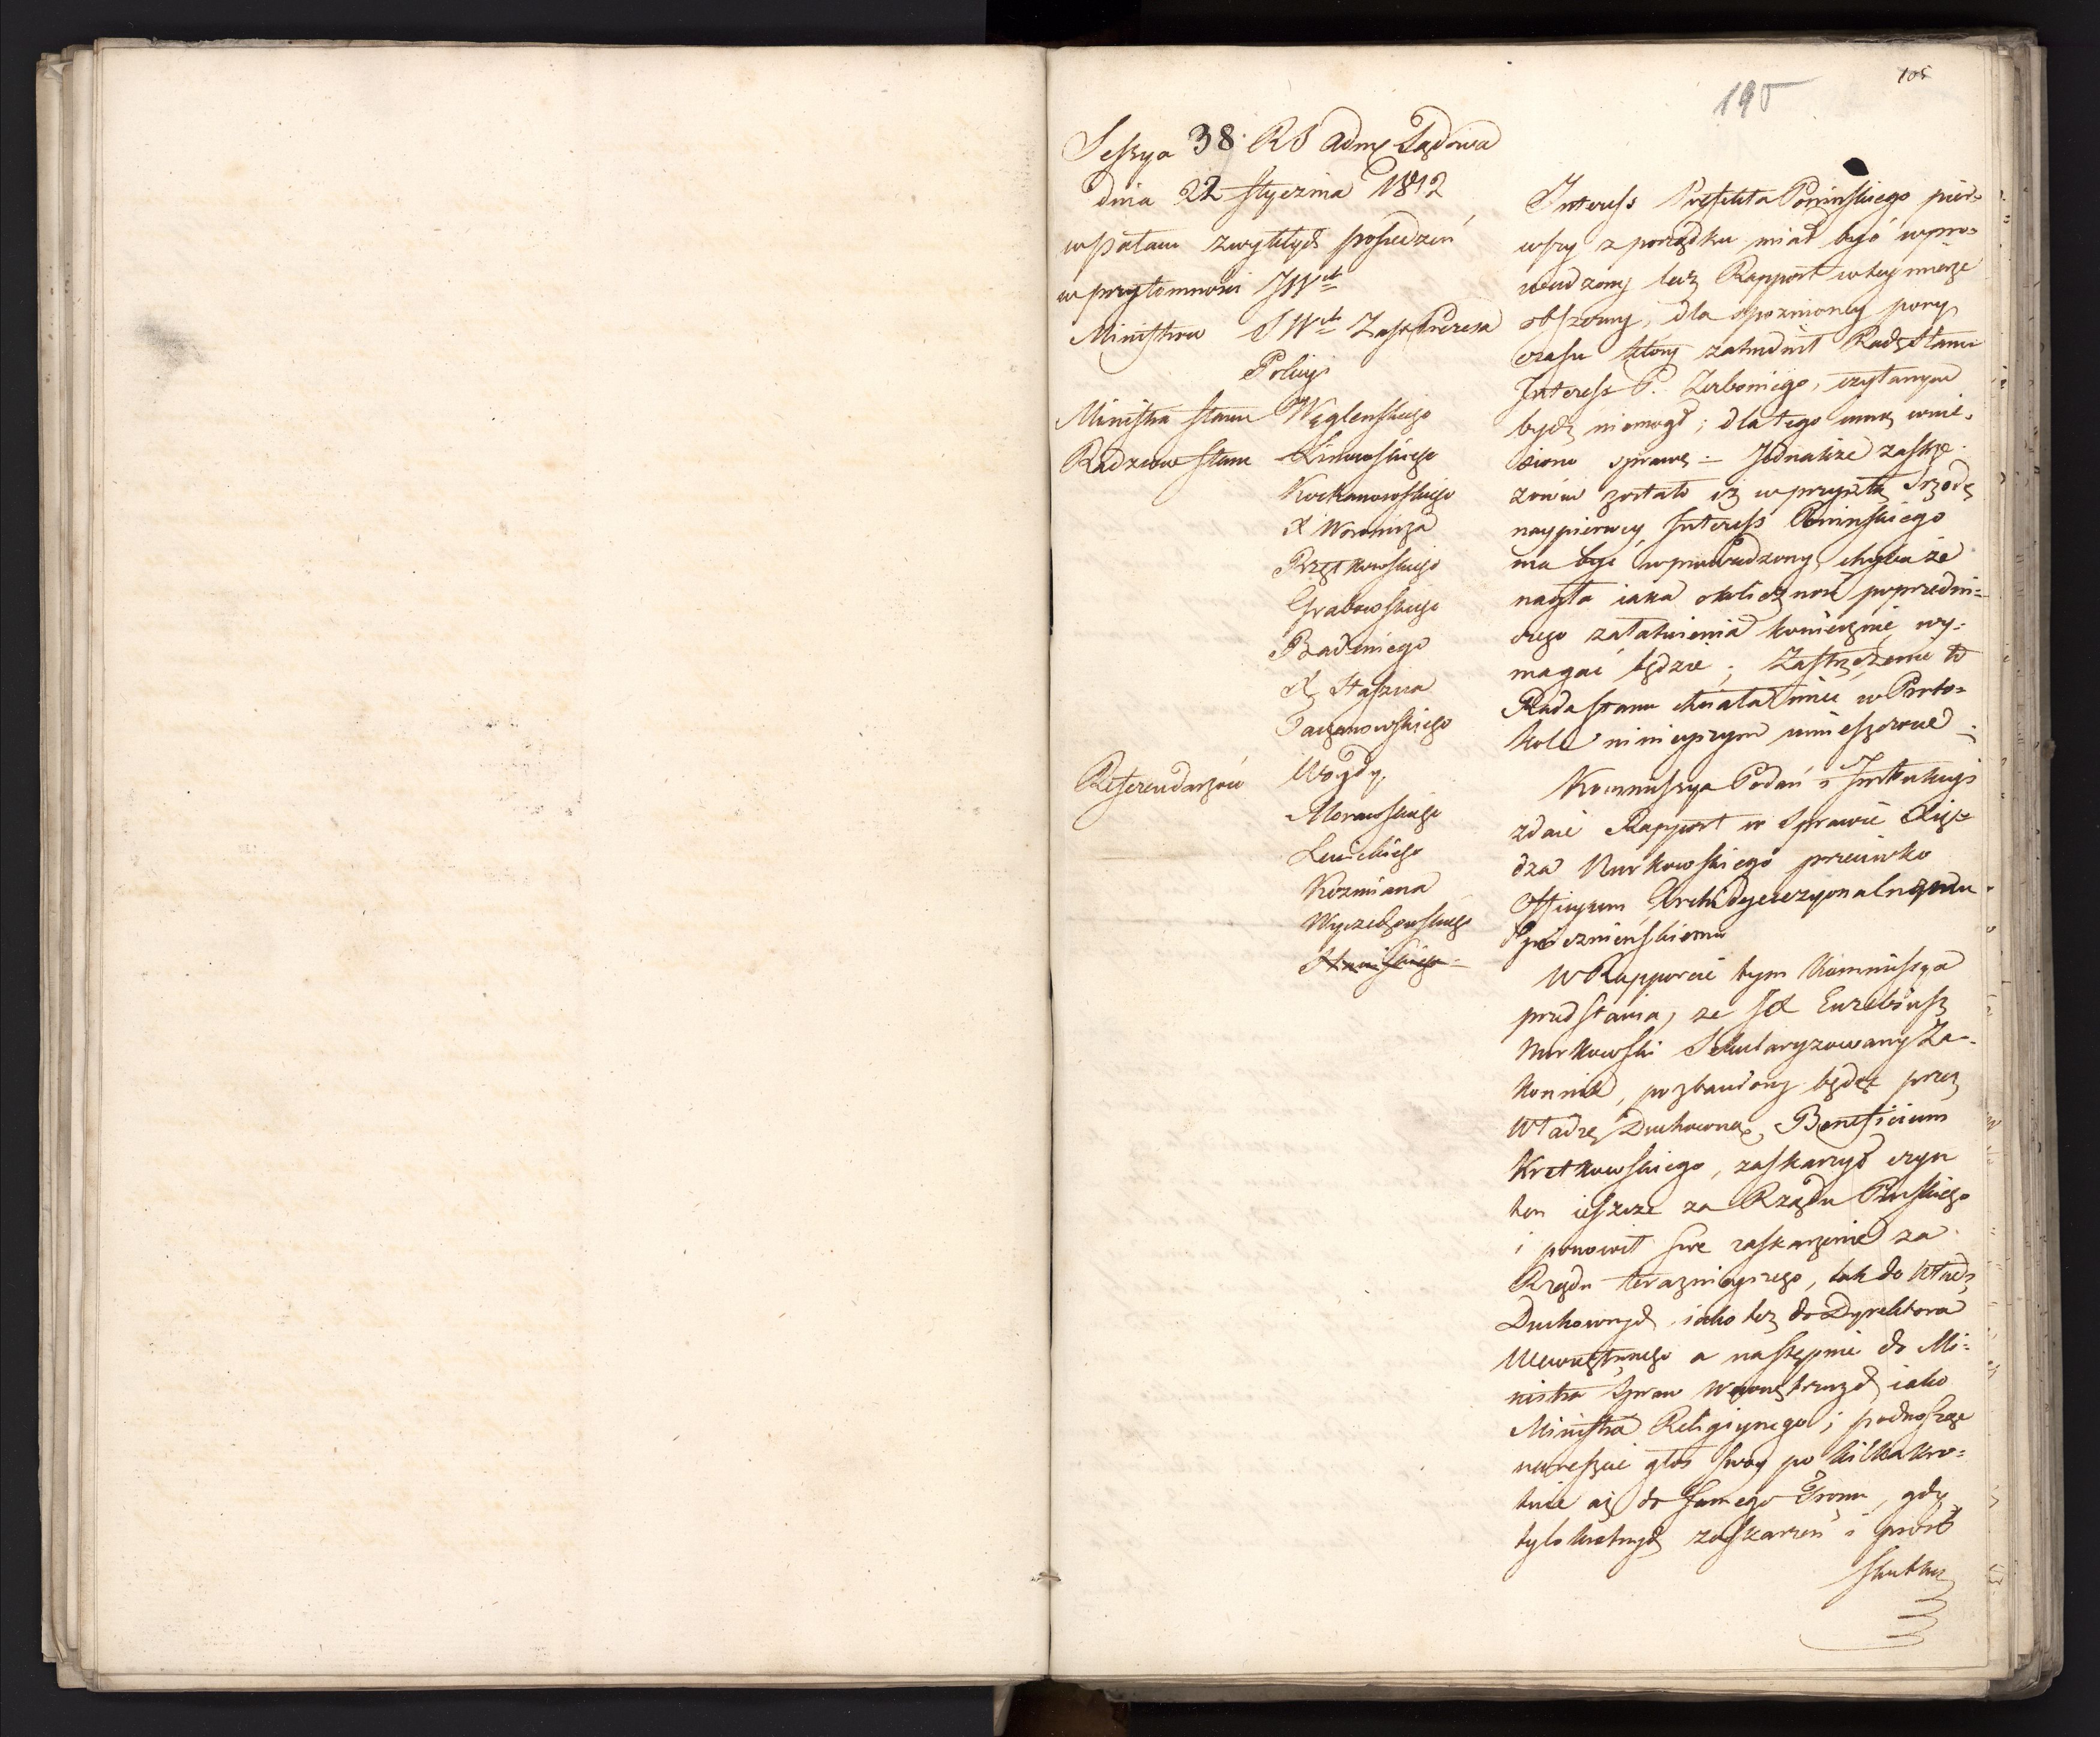 105
195
Sessya 38 RS Admę Sądowa
dnia 22 Stycznia 1812
w pałacu zwykłych posiedzeń
w przytomności JWch
Ministrów JWch Zastę Prezesa
Policyi
Ministra Stanu Węglenskiego
Radzców Stanu Linowskiego
Kochanowskiego
X Woronicza
Grabowskiego
Badeniego
X Staszica
Referendarzów Woydy
Morawskiego
Lewickiego
Kozmiana
Wyczechowskiego
Interess Prefekta Poninskiego pier-
wszy z porządku miał być wpro-
wadzony lecz Rapport w tey mierze
obszerny, dla spoznioney pory
czasu który zatrudnił Radę Stanu
Interess P. Zerboniego, czytanym
bydź niemogł; dla tego inną wnie-
siono sprawę = Jednakże zastrze-
żonem zostało iż w przyszłą Srzodę
naypierwey Interess Poninskiego
ma być wprowadzony, chyba że
nagła iaka okoliczność poprzedni-
czego załatwienia koniecznie wy-
magać będzie; Zastrzeżenie to
Rada Stanu chciała mieć w Proto-
kole ninieyszym umieszczone =
Kommissya Podań i Instrukcyi
zdaie Rapport w Sprawie Xię-
dza Nurkowskiego przeciwko
Officyum Archidyecezyonalnemu
Gnieznienskiemu
W Rapporcie tym Kommissya
przedstawia, ze JX Euzebiusz
Nurkowski Sekularyzowany Za-
konnik, pozbawiony będąc przez
Władzę Duchowną, Beneficium
Kretkowskiego, zaskarzył czyn
ten ieszcze za Rządu Pruskiego
i ponowił swe zaskarzenie za
Rządu teraznieyszego, tak do Władz
Duchownych iako też do Dyrektora
Wewnętrznego a następnie do Mi-
nistra Spraw Wewnętrznych iako
Ministra Religiynego; podnosząc
nareszcie głos swóy po kilkakro-
tnie aż do samego Tronu, gdy
tylokrotnych zaskarzeń i prośb
skutku